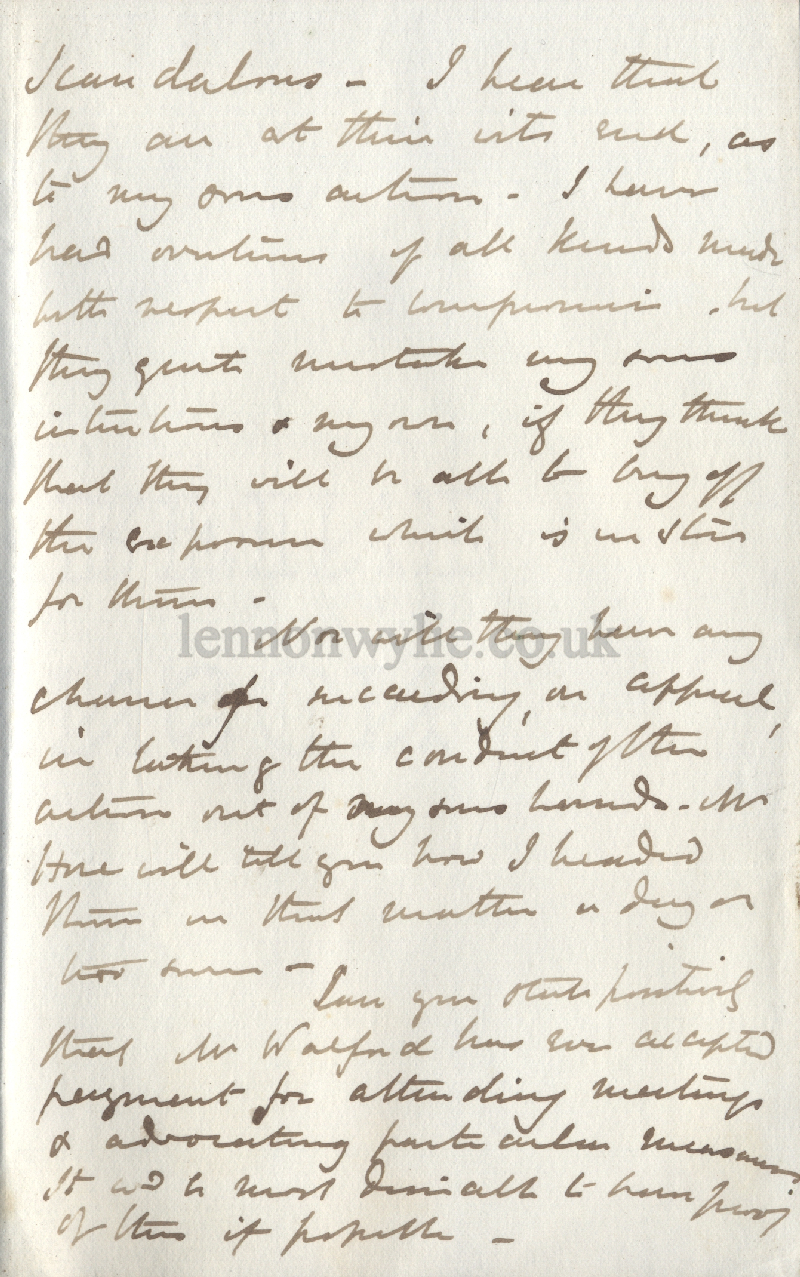 Scandalous - I hear that
they are at their wits end, as
to my sons action - I have
had overtures of all kinds made
with respect to compromise, but
they quite mistake my sons
intentions & my own, if they think
that they will be able to buy off
the exposure which is in store
for them -
lennonwylie.co.uk
Nor will they have any
chance of succeeding, on appeal,
in taking the conduct of the
action out of my sons hands - Mr
Hore will tell you how I headed
them in that matter a day or
two since -
Can you state positively
that Mr Walford has ever accepted
payment for attending meetings
& advocating particular measures
It wd be most desirable to have proof
of this if possible -